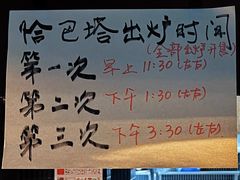 恰巴塔出炉时间
(全部出炉开售)
第一次 早上 11:30(左右)
第二次 下午 1:30(左右)
第三次 下午 3:30(左右)